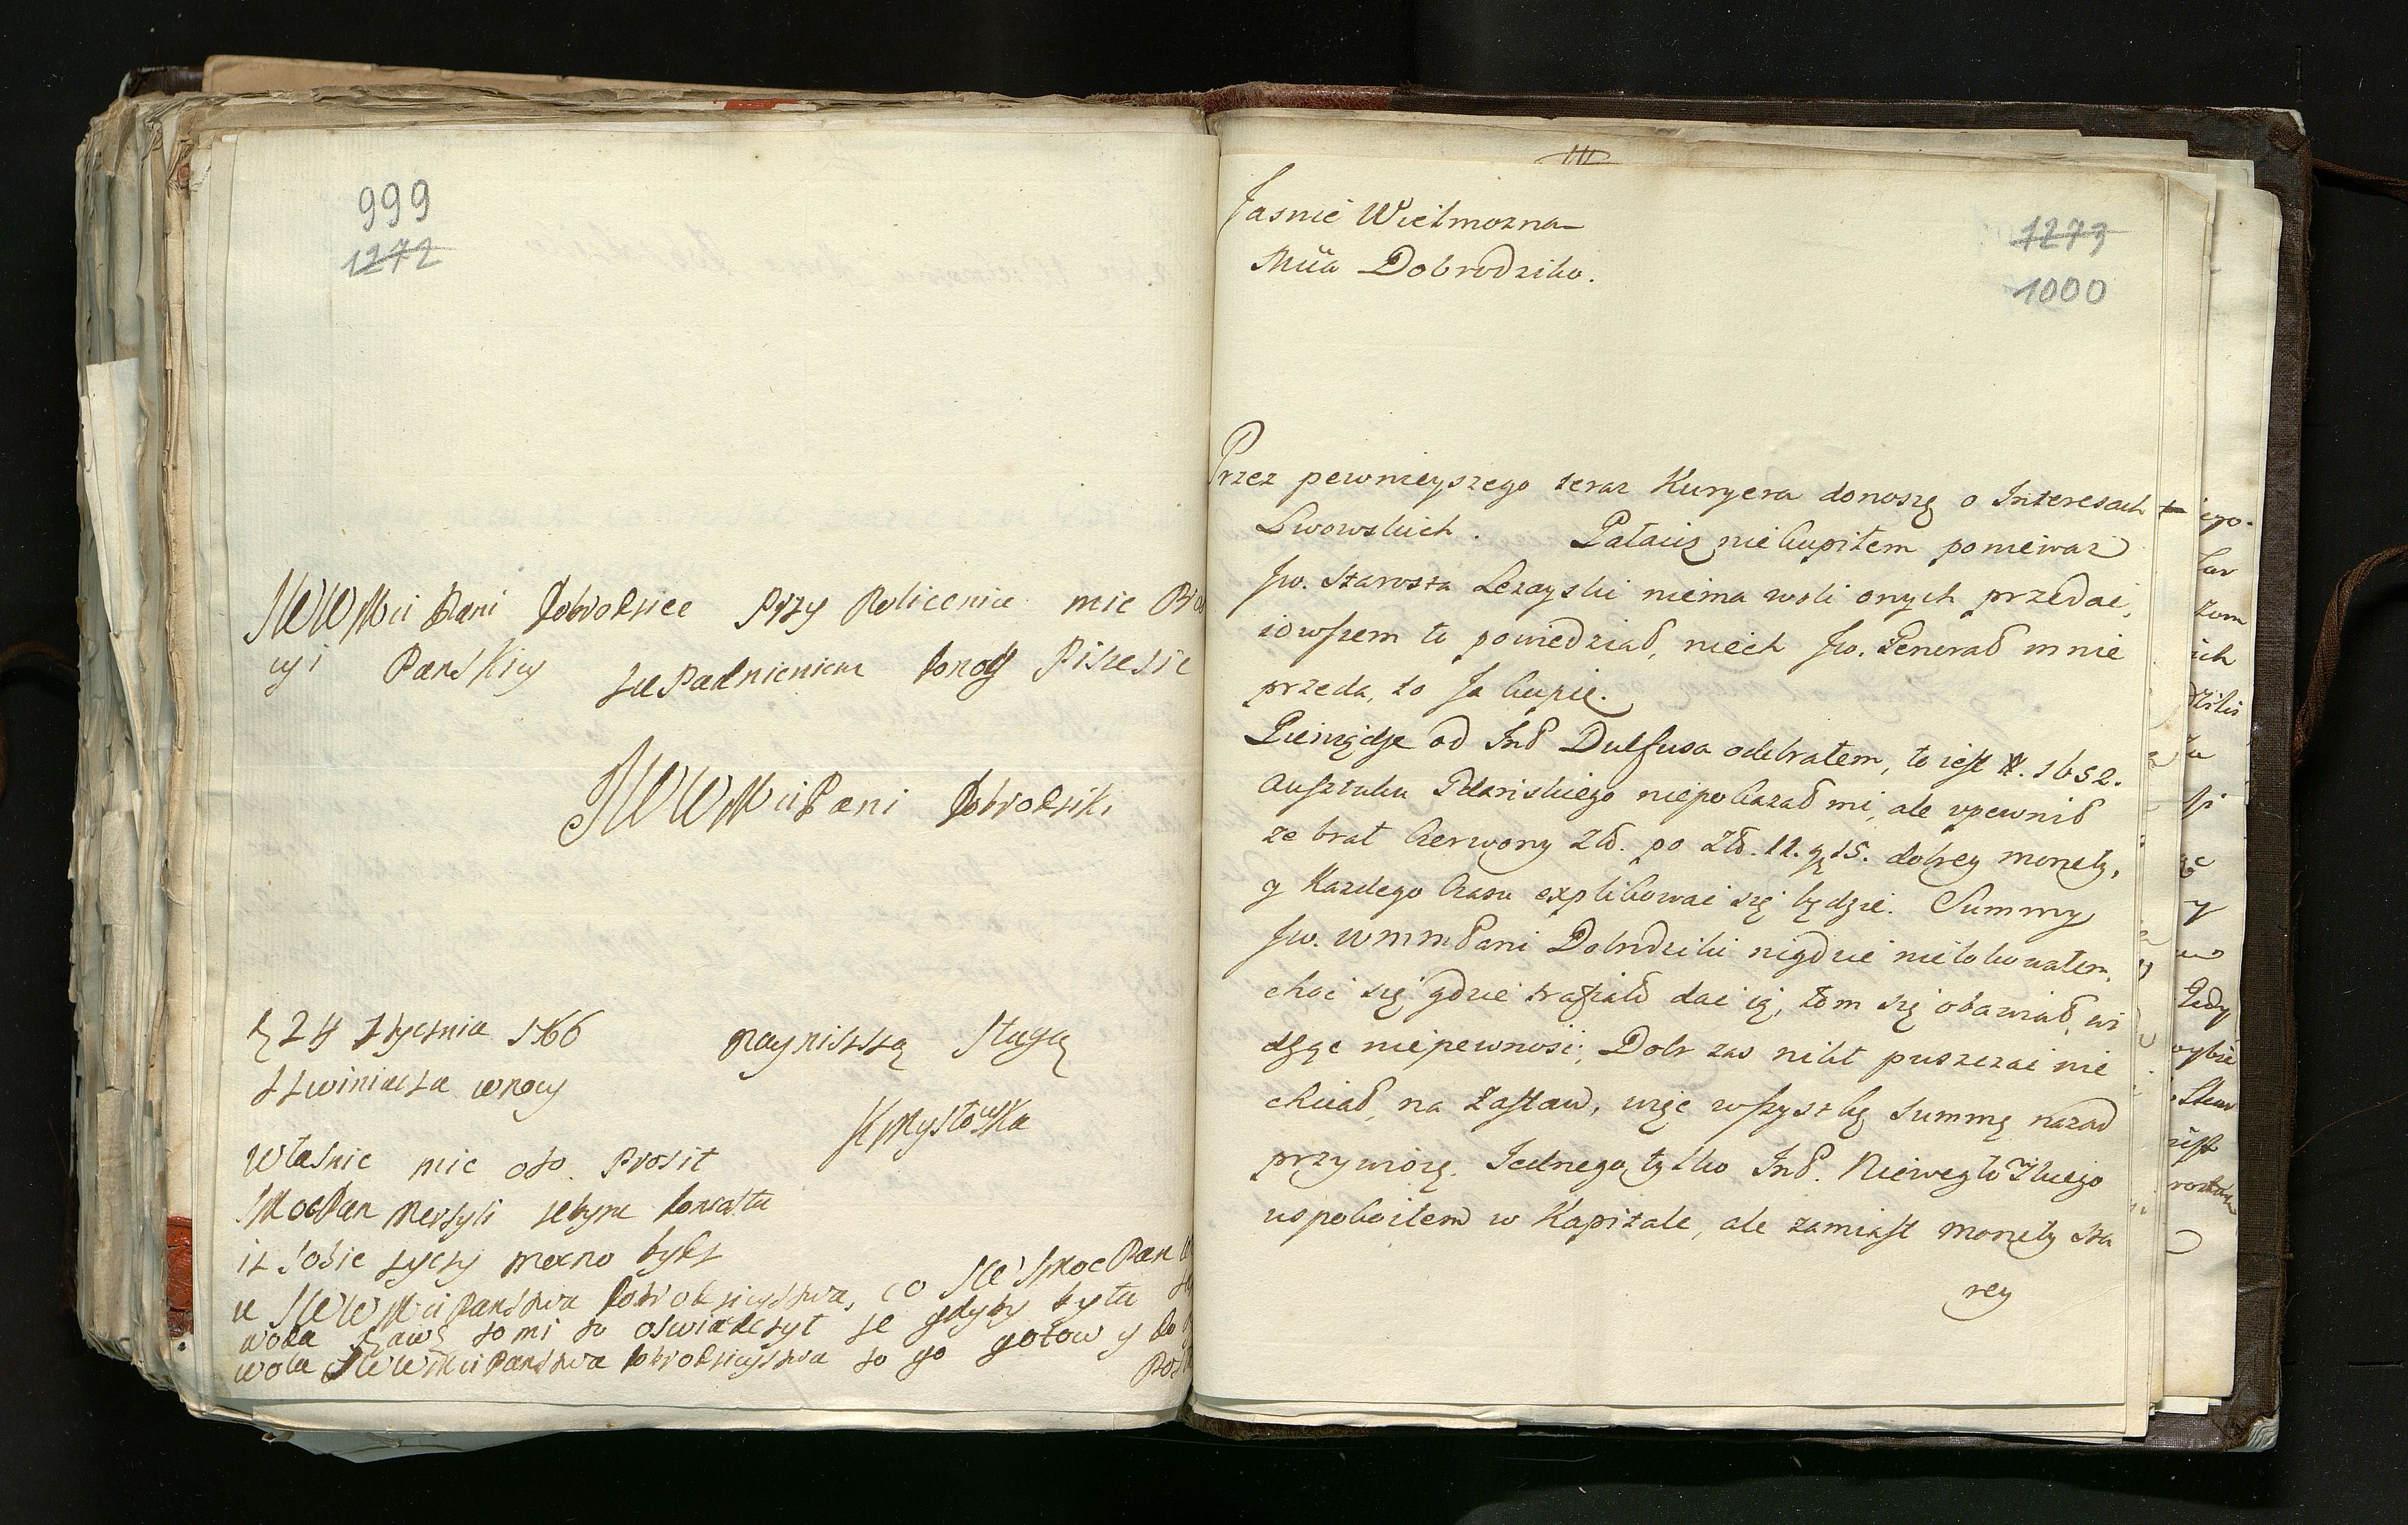 999
1272
JWWMci Pani Dobrodzice przy Policeniu mie Pro
yi Panskiey zupadnieniem donog Piszesie
JWWMciPani Dobrodziki
d 24 stycznia 1766
z zwiniacza wnocy
naynizszą sługą
KMysłowska
Własnie mie oto Prosił
JMocPan Mersyli zebym doniosła
iz sobie zyczy mocno bydz
u JWWMciPanstwa Dobrodzieystwa, co
wola to mi to oswiadczył ze gdyby była
wola JWWMciPanstwa dobrodzieystwa to go gotow y do
1273
1000
Jasnie Wielmozna
Mcia Dobrodziko.
Przez pewnieyszego teraz Kuryera donoszę o Interesach
Lwowskich. Pałacu niekupiłem poniewaz
Jw. Starosta Lezayski niema woli onych przedac,
iowszem to powiedział, niech Jw. Generał mnie
przeda, to Ja kupię.
Pieniądze od ImP Dulfusa odebrałem, to iest #. 1652.
Ausztuku Pdanskiego niepokazał mi, ale upewnił
ze brał Czerwony Zł. po Zł. 11. g 15. dobrey monety,
y Kazdego Czasu explikowac się będzie. Summy
Jw. WMMPani Dobrodziki nigdzie nielokowałem,
choc się gdzie trafiało dac ią, tom się obawiał, wi
dząc niepewnosc; Dobr zas nikt puszczac nie
chciał, na Zastaw, więc wszystkę Summę nazad
przywiozę. Jednego tylko ImP. Niewegłowskiego
uspokoiłem w Kapitale, ale zamiast monety sta
rey